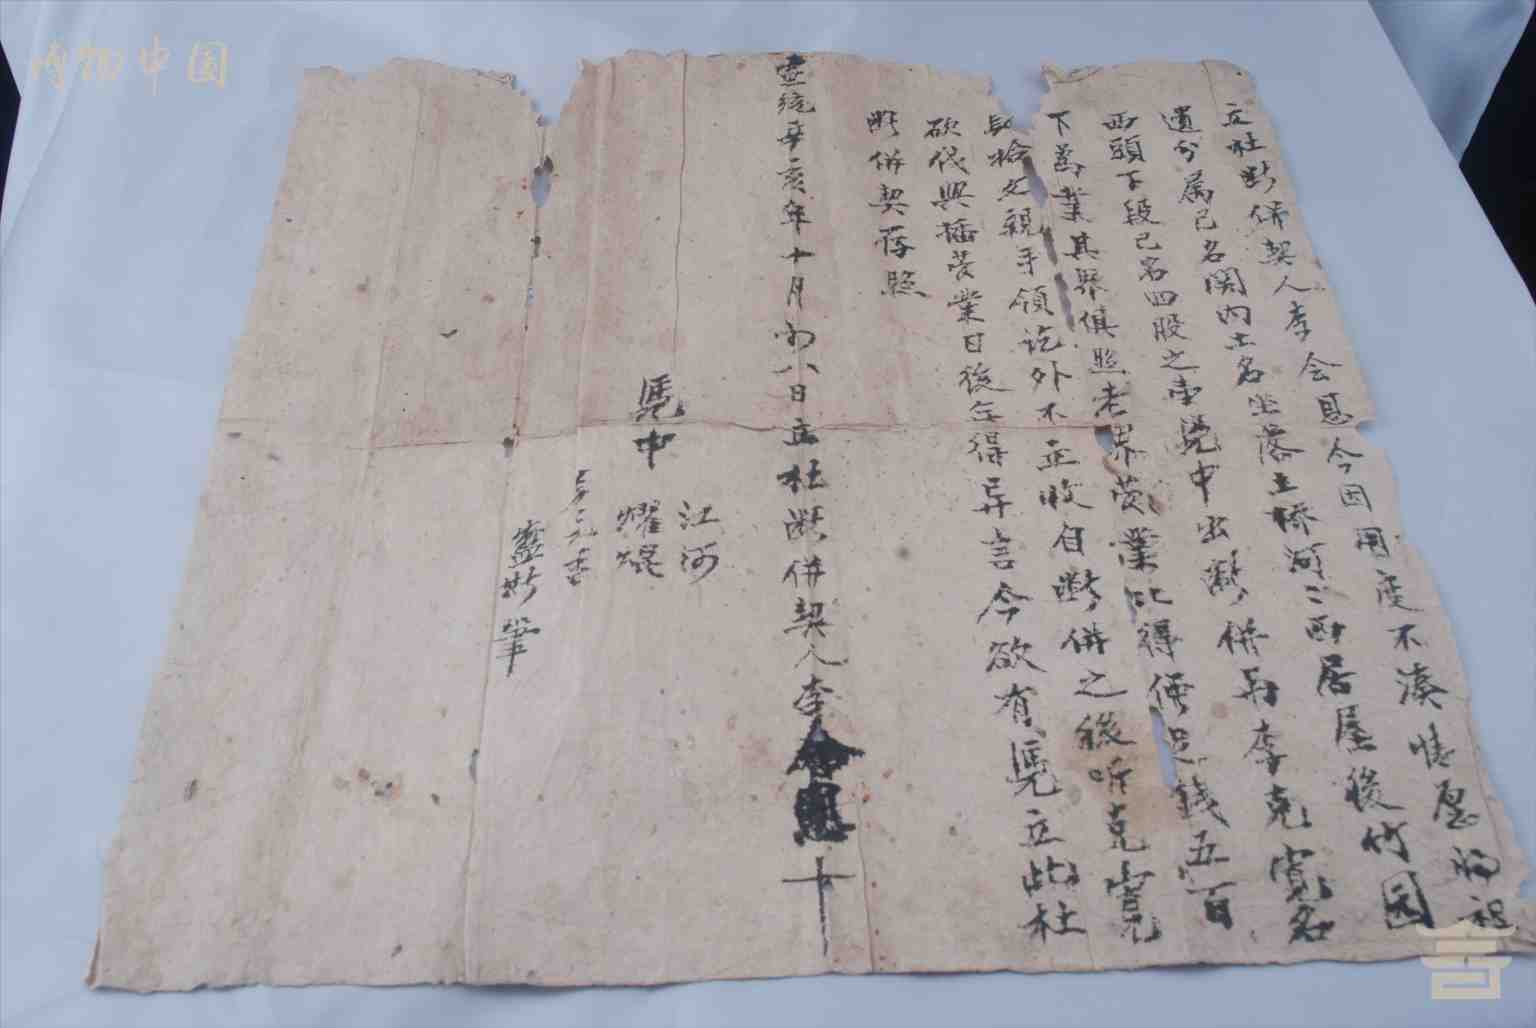 立杜断併契人李会恩今因用度不湊情愿将祖
遺分属己名閣内土名坐落土桥河二面居屋後竹园
西頭下段己名四股之壹凭中出断併与李克寬名
下為業其界俱照老界营業比得併足錢五百
拾文親手領訖外不正收自断併之後听克寬
砍伐興插营業日後無得异言今欲有凭立此杜
断併契存照
宣統辛亥年十月初八日立杜断併契人李会恩十
凭中
江河
耀焜
元香
断筆
博物中国